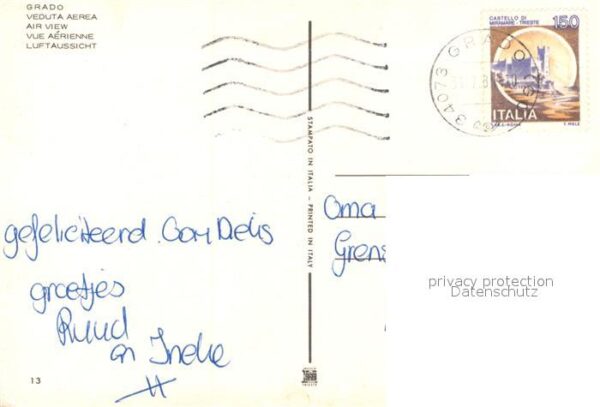 GRADO
VEDUTA AEREA
AIR VIEW
VUE AÉRIENNE
LUFTAUSSICHT
CASTELLO DI
MIRAMARE - TRIESTE
150
ITALIA
34073 GRADO
STAMPATO IN ITALIA - PRINTED IN ITALY
gefeliciteerd
groetjes
Ruud
en Ineke
Oma
Grens
privacy protection
Datenschutz
13